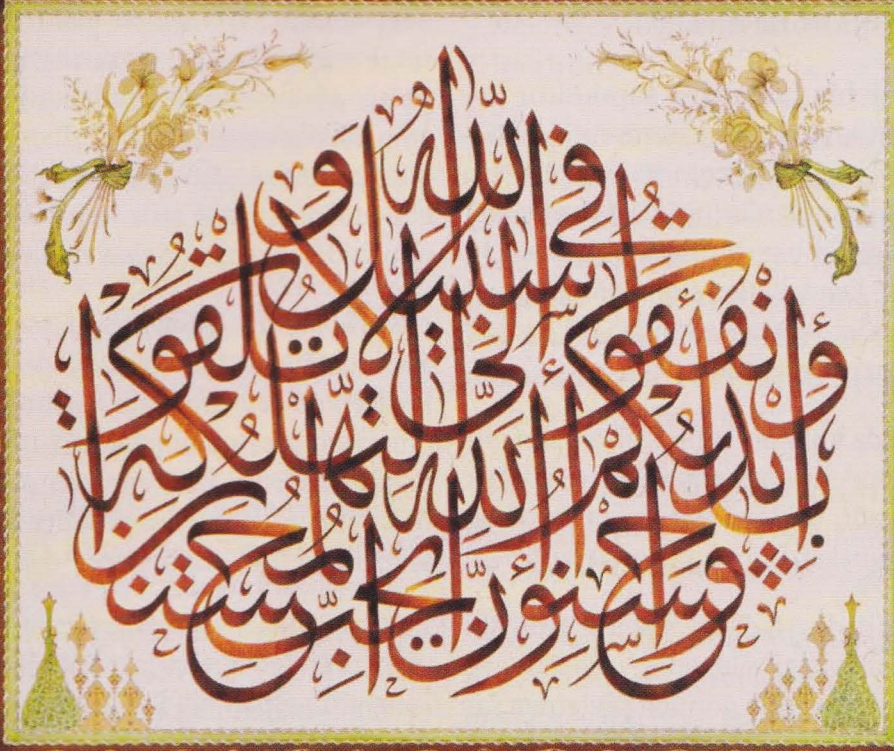 وَأَنْفِقُوا فِي سَبِيلِ اللَّهِ وَلَا تُلْقُوا
بِأَيْدِيكُمْ إِلَى التَّهْلُكَةِ
وَأَحْسِنُوا إِنَّ اللَّهَ يُحِبُّ الْمُحْسِنِينَ